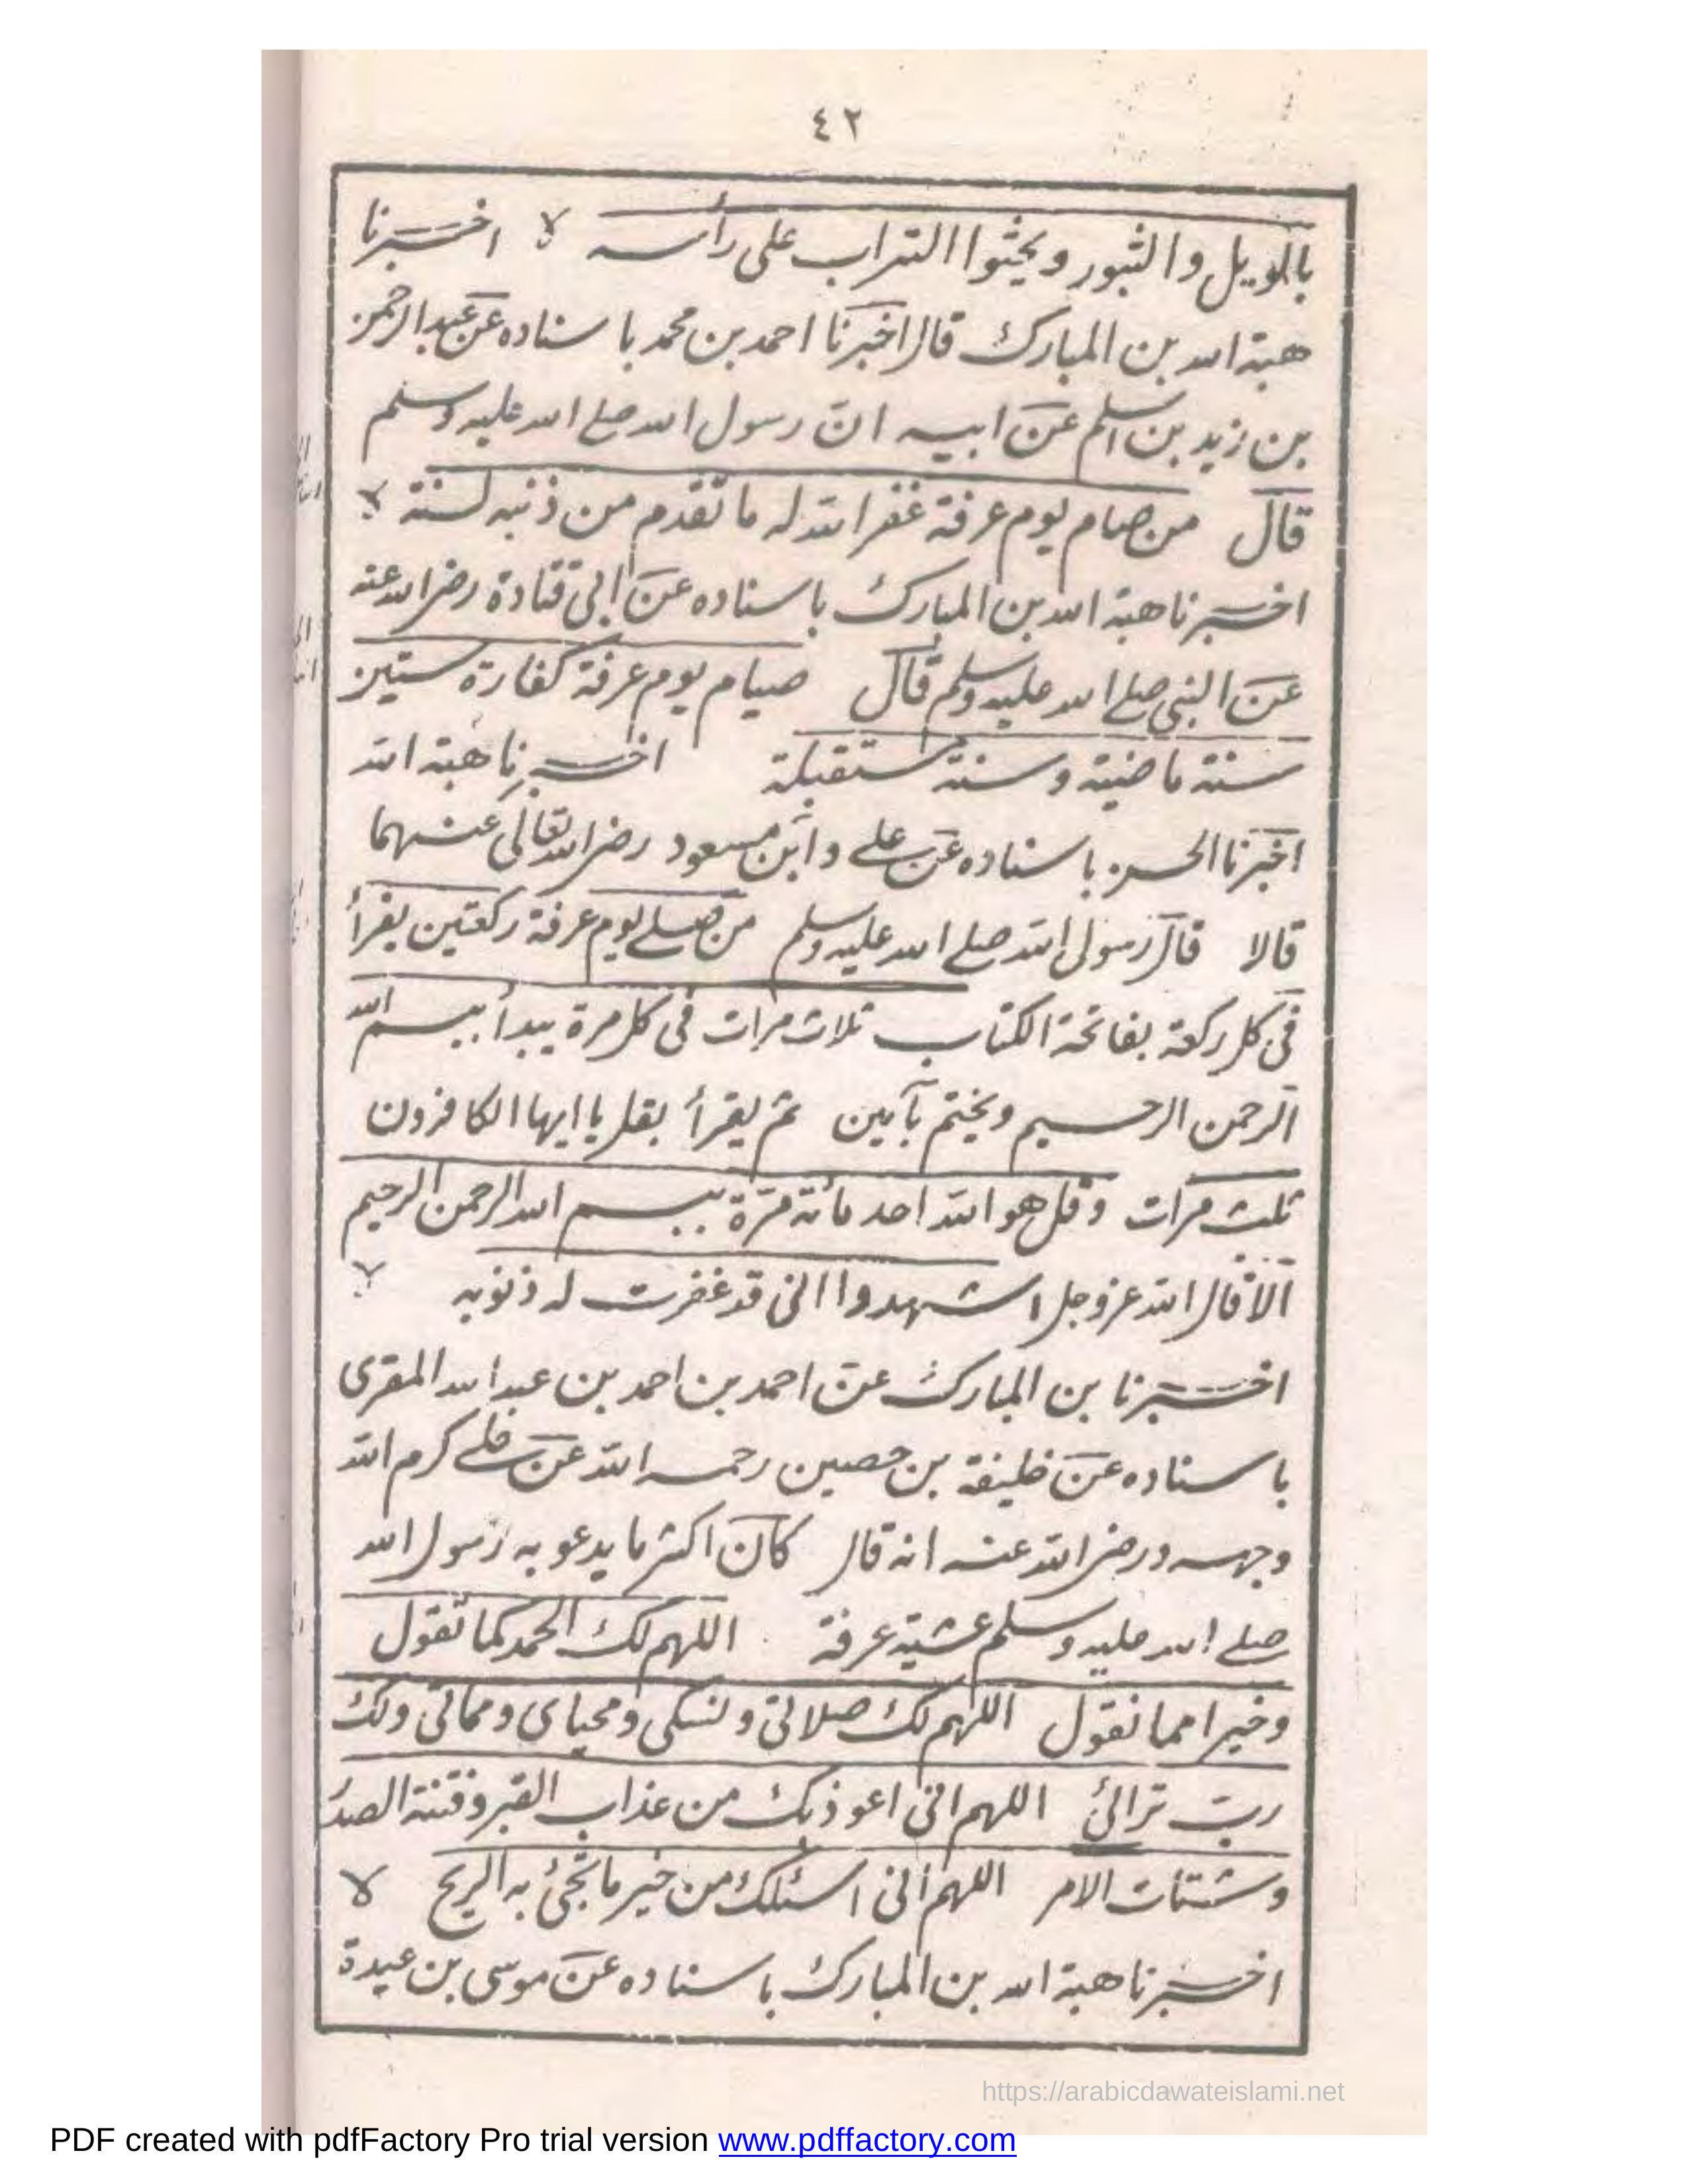 ٤٢
بالويل والثبور ويحثوا التراب على رأسه لا اخبرنا
هبة الله بن المبارك قال اخبرنا احمد بن محمد باسناده عن عبد الرحمن
بن زيد بن اسلم عن ابيه ان رسول الله صلى الله عليه وسلم
قال من صام يوم عرفة غفر الله له ما تقدم من ذنبه لسنة لا
اخبرنا هبة الله بن المبارك باسناده عن ابى قتادة رضى الله عنه
عن النبى صلى الله عليه وسلم قال صيام يوم عرفة كفارة ستين
سنة ماضية وسنة مستقبلة اخبرنا هبة الله
اخبرنا الحسن باسناده عن على وابن مسعود رضى الله تعالى عنهما
قالا قال رسول الله صلى الله عليه وسلم من صلى يوم عرفة ركعتين يقرأ
فى كل ركعة بفاتحة الكتاب ثلاث مرات فى كل مرة يبدأ ببسم الله
الرحمن الرحيم ويختم بآمين ثم يقرأ بقل يا ايها الكافرون
ثلث مرات وقل هو الله احد مائة مرة ببسم الله الرحمن الرحيم
الا قال الله عز وجل اشهدوا انى قد غفرت له ذنوبه لا
اخبرنا بن المبارك عن احمد بن احمد بن عبد الله المقرى
باسناده عن خليفة بن حصين رحمه الله عن على كرم الله
وجهه ورضى الله عنه انه قال كان اكثر ما يدعو به رسول الله
صلى الله عليه وسلم عشية عرفة اللهم لك الحمد كما تقول
وخيرا مما نقول اللهم لك صلاتى ونسكى ومحياى ومماتى ولك
رب تراثى اللهم انى اعوذ بك من عذاب القبر وفتنة الصدر
وشتات الامر اللهم انى اسئلك من خير ما تجئ به الريح لا
اخبرنا هبة الله بن المبارك باسناده عن موسى بن عبيدة
https://arabicdawateislami.net
PDF created with pdfFactory Pro trial version www.pdffactory.com